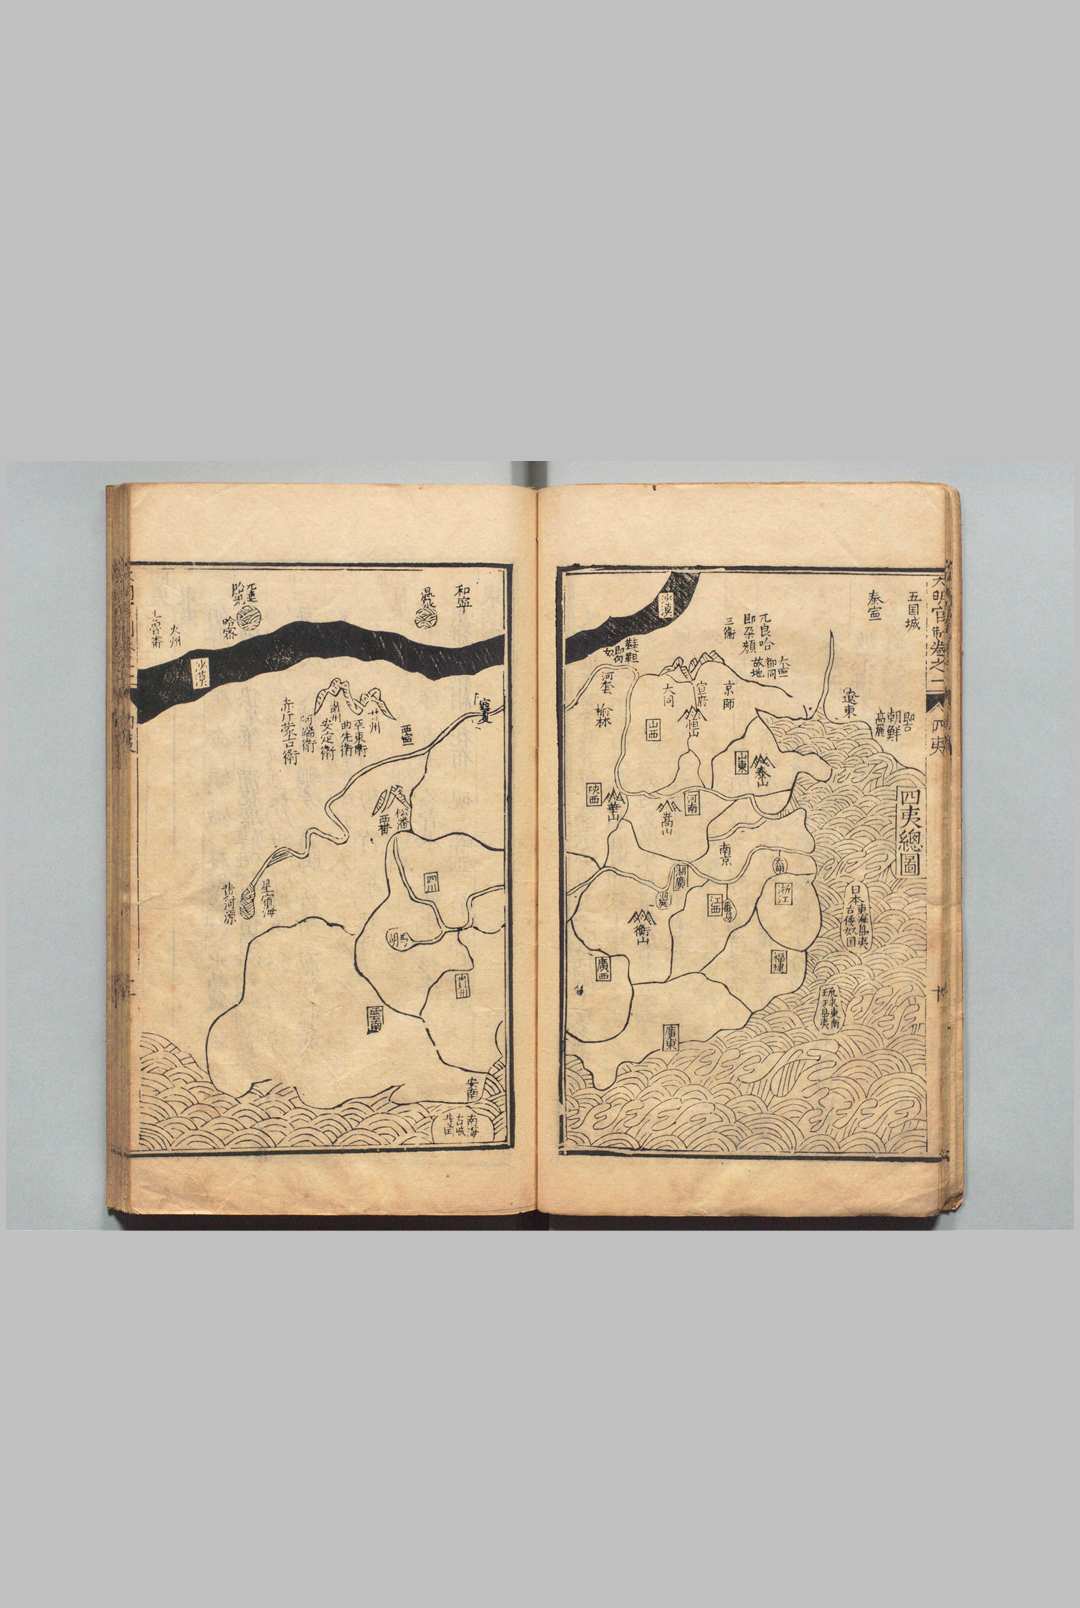 大明官制卷之一
四夷
四夷總圖
五国城
泰寧
遼東
朝鮮
即古
高麗
兀良哈
即朶顔
三衛
大寧
故地
京師
宣府
大同
恒山
山西
沙漠
韃靼
河套
榆林
山東
泰山
陝西
華山
嵩山
河南
南京
湖廣
江西
浙江
衡山
福建
廣西
廣東
日本
東海島夷
古倭奴国
琉球
東南
島夷
和寧
哈密
火州
沙漠
寧夏
西寧
甘州
肅州
安定衛
曲先衛
罕東衛
阿端衛
赤斤蒙古衛
松潘
西番
星宿海
黄河源
四川
貴州
雲南
安南
南海
占城